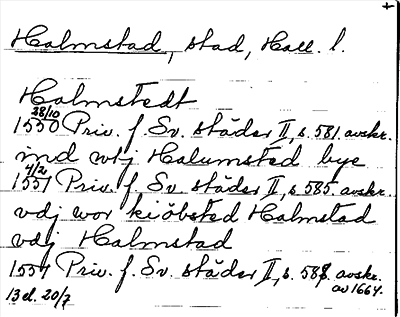 +
Halmstad, stad, Hall. l.
Halmstedt
28/10
1550 Priv. f. Sv. städer II, s. 581. avskr.
ind vtj Halumsted bye
4/2
1551 Priv. f. Sv. städer II, s. 585. avskr.
vdj wor kiöbsted Halmstad
vdj Halmstad
1557 Priv. f. Sv. städer II, s. 588. avskr.
13 d. 20/7 av 1664.